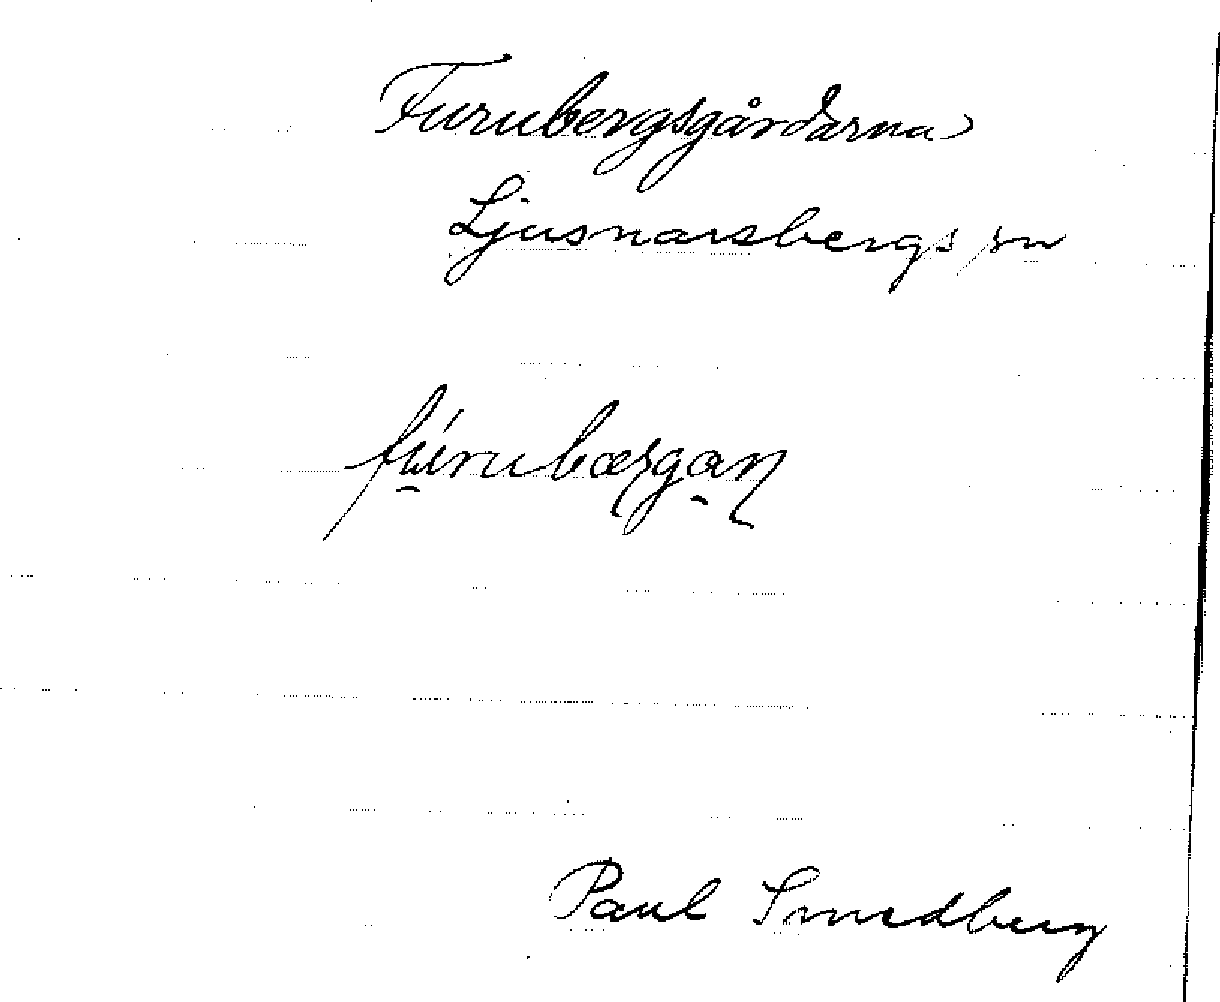 Furubergsgårdarna
Ljusnarsbergs sn
fúrubærgan
Paul Smedberg